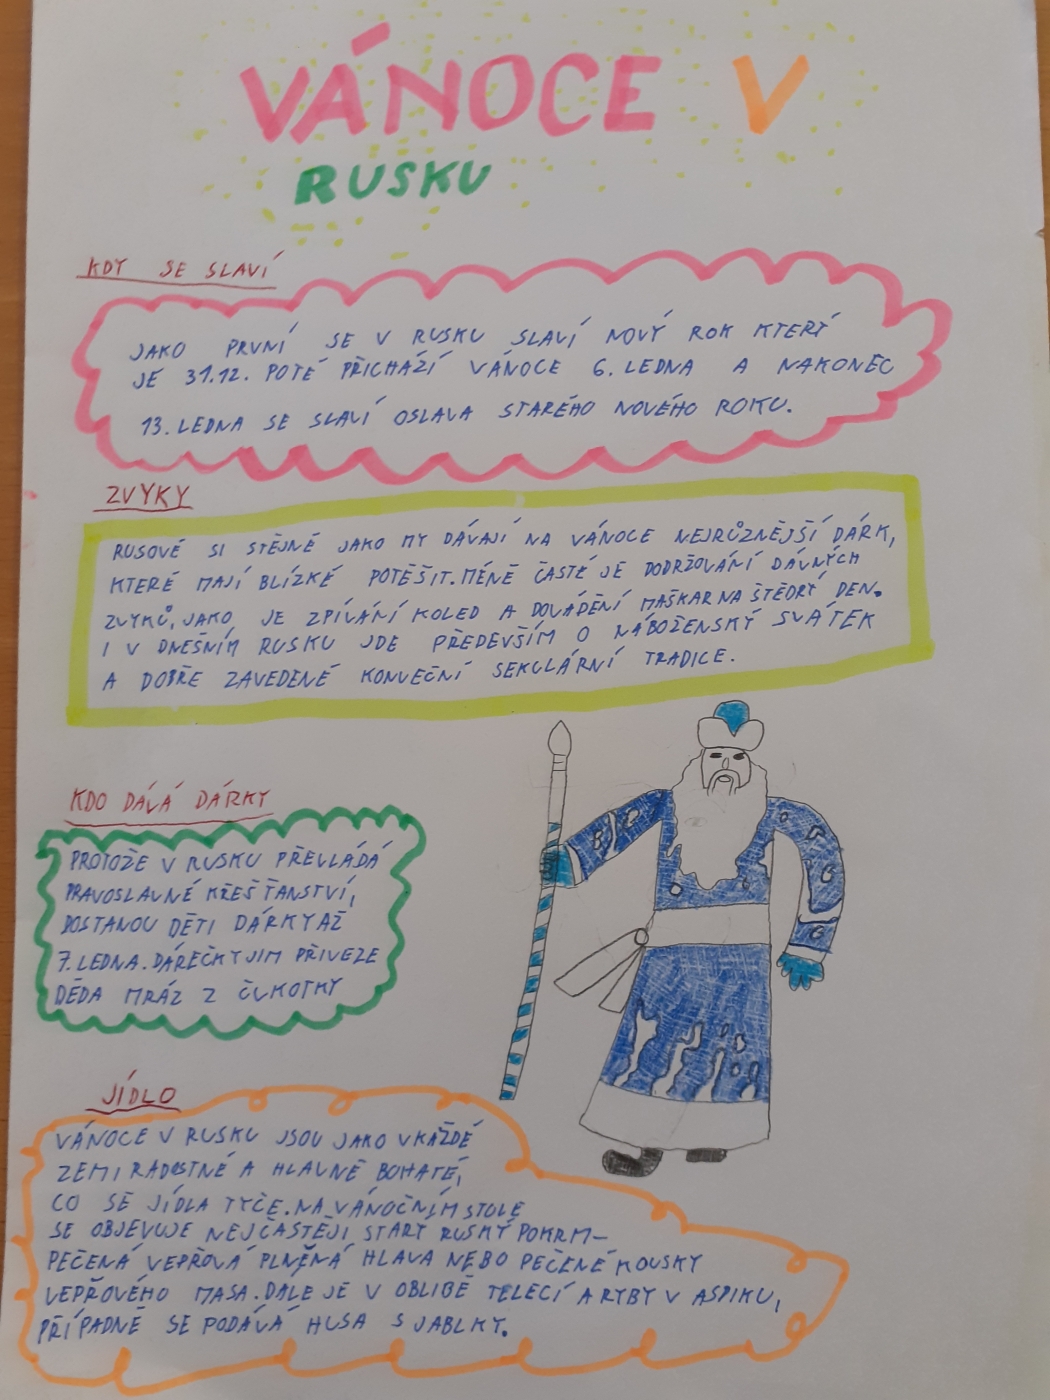 VÁNOCE V
RUSKU
KDY SE SLAVÍ
JAKO PRVNÍ SE V RUSKU SLAVÍ NOVÝ ROK KTERÝ
JE 31.12. POTÉ PŘICHÁZÍ VÁNOCE 6. LEDNA A NAKONEC
13. LEDNA SE SLAVÍ OSLAVA STARÉHO NOVÉHO ROKU.
ZVYKY
RUSOVÉ SI STĚJNĚ JAKO MY DÁVAJÍ NA VÁNOCE NEJRŮZNĚJŠÍ DÁRK,
KTERÉ MAJÍ BLÍZKÉ POTĚŠIT. MÉNĚ ČASTÉ JE DODRŽOVÁNÍ DÁVNÝCH
ZVYKŮ, JAKO JE ZPÍVÁNÍ KOLED A DOVÁDĚNÍ MAŠKAR NA ŠTĚDRÝ DEN.
I V DNEŠNÍM RUSKU JDE PŘEDEVŠÍM O NÁBOŽENSKÝ SVÁTEK
A DOBŘE ZAVEDENÉ KONVEČNÍ SEKULÁRNÍ TRADICE.
KDO DÁVÁ DÁRKY
PROTOŽE V RUSKU PŘEVLÁDÁ
PRAVOSLAVNÉ KŘESŤANSTVÍ,
DOSTANOU DĚTI DÁRKY AŽ
7. LEDNA. DÁREČKY JIM PŘIVEZE
DĚDA MRÁZ Z ČUKOTKY
JÍDLO
VÁNOCE V RUSKU JSOU JAKO V KAŽDÉ
ZEMI RADOSTNÉ A HLAVNĚ BOHATÉ,
CO SE JÍDLA TÝČE. NA VÁNOČNÍM STOLE
SE OBJEVUJE NEJČASTĚJI STARÝ RUSKÝ POKRM-
PEČENÁ VEPŘOVÁ PLNĚNÁ HLAVA NEBO PEČENÉ KOUSKY
VEPŘOVÉHO MASA. DÁLE JE V OBLIBĚ TELECÍ A RYBY V ASPIKU,
PŘÍPADNĚ SE PODÁVÁ HUSA S JABLKY.